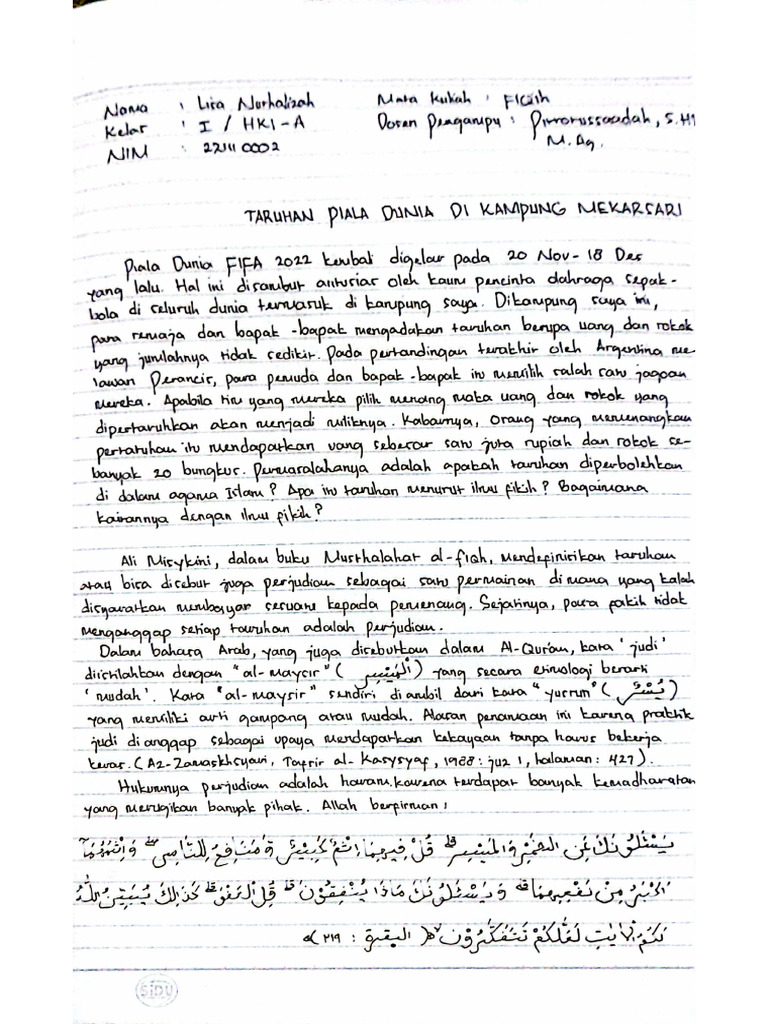 Nama : Lisa Nurhalizah Mata Kuliah : FIQih
Kelas : I / HKI-A Dosen Pengampu : Pimorussaadah, S.HI
NIM : 22110002 M.Ag.
TARUHAN PIALA DUNIA DI KAMPUNG MEKARSARI
Piala Dunia FIFA 2022 kembali digelar pada 20 Nov-18 Des
yang lalu. Hal ini disambut antusias oleh kaum pencinta olahraga sepak-
bola di seluruh dunia termasuk di kampung saya. Dikampung saya ini,
para remaja dan bapak-bapak mengadakan taruhan berupa uang dan rokok
yang jumlahnya tidak sedikit. Pada pertandingan terakhir oleh Argentina me
lawan Perancis, para pemuda dan bapak-bapak itu memilih salah satu jagoan
mereka. Apabila tim yang mereka pilih menang maka uang dan rokok yang
dipertaruhkan akan menjadi miliknya. Kabarnya, orang yang memenangkan
pertaruhan itu mendapatkan uang sebesar satu juta rupiah dan rokok se-
banyak 20 bungkus. Permasalahanya adalah apakah taruhan diperbolehkan
di dalam agama Islam? Apa itu taruhan menurut ilmu fikih? Bagaimana
kaitannya dengan ilmu fikih?
Ali Misykini, dalam buku Musthalahat al-fiqh, mendefinisikan taruhan
atau bisa disebut juga perjudian sebagai satu permainan dimana yang kalah
disyaratkan membayar sesuatu kepada pemenang. Sejatinya, para fakih tidak
menganggap setiap taruhan adalah perjudian.
Dalam bahasa Arab, yang juga disebutkan dalam Al-Qur'an, kata 'judi'
diistilahkan dengan "al-maysir" (الْمَيْسِرِ) yang secara etimologi berarti
'mudah'. Kata "al-maysir" sendiri diambil dari kata "yusrun" (يُسْرٌ)
yang memiliki arti gampang atau mudah. Alasan penamaan ini karena praktik
judi dianggap sebagai upaya mendapatkan kekayaan tanpa harus bekerja
keras. (Az-Zamakhsyari, Tafsir al-Kasysyaf, 1988: juz 1, halaman: 427).
Hukumnya perjudian adalah haram, karena terdapat banyak kemadharatan
yang merugikan banyak pihak. Allah berfirman:
يَسْـَٔلُوْنَكَ عَنِ الْخَمْرِ وَالْمَيْسِرِۗ قُلْ فِيْهِمَآ اِثْمٌ كَبِيْرٌ وَّمَنَافِعُ لِلنَّاسِۖ وَاِثْمُهُمَآ
اَكْبَرُ مِنْ نَّفْعِهِمَاۗ وَيَسْـَٔلُوْنَكَ مَاذَا يُنْفِقُوْنَۗ قُلِ الْعَفْوَۗ كَذٰلِكَ يُبَيِّنُ اللّٰهُ
لَكُمُ الْاٰيٰتِ لَعَلَّكُمْ تَتَفَكَّرُوْنَۙ (البقرة : ٢١٩)
SIDU